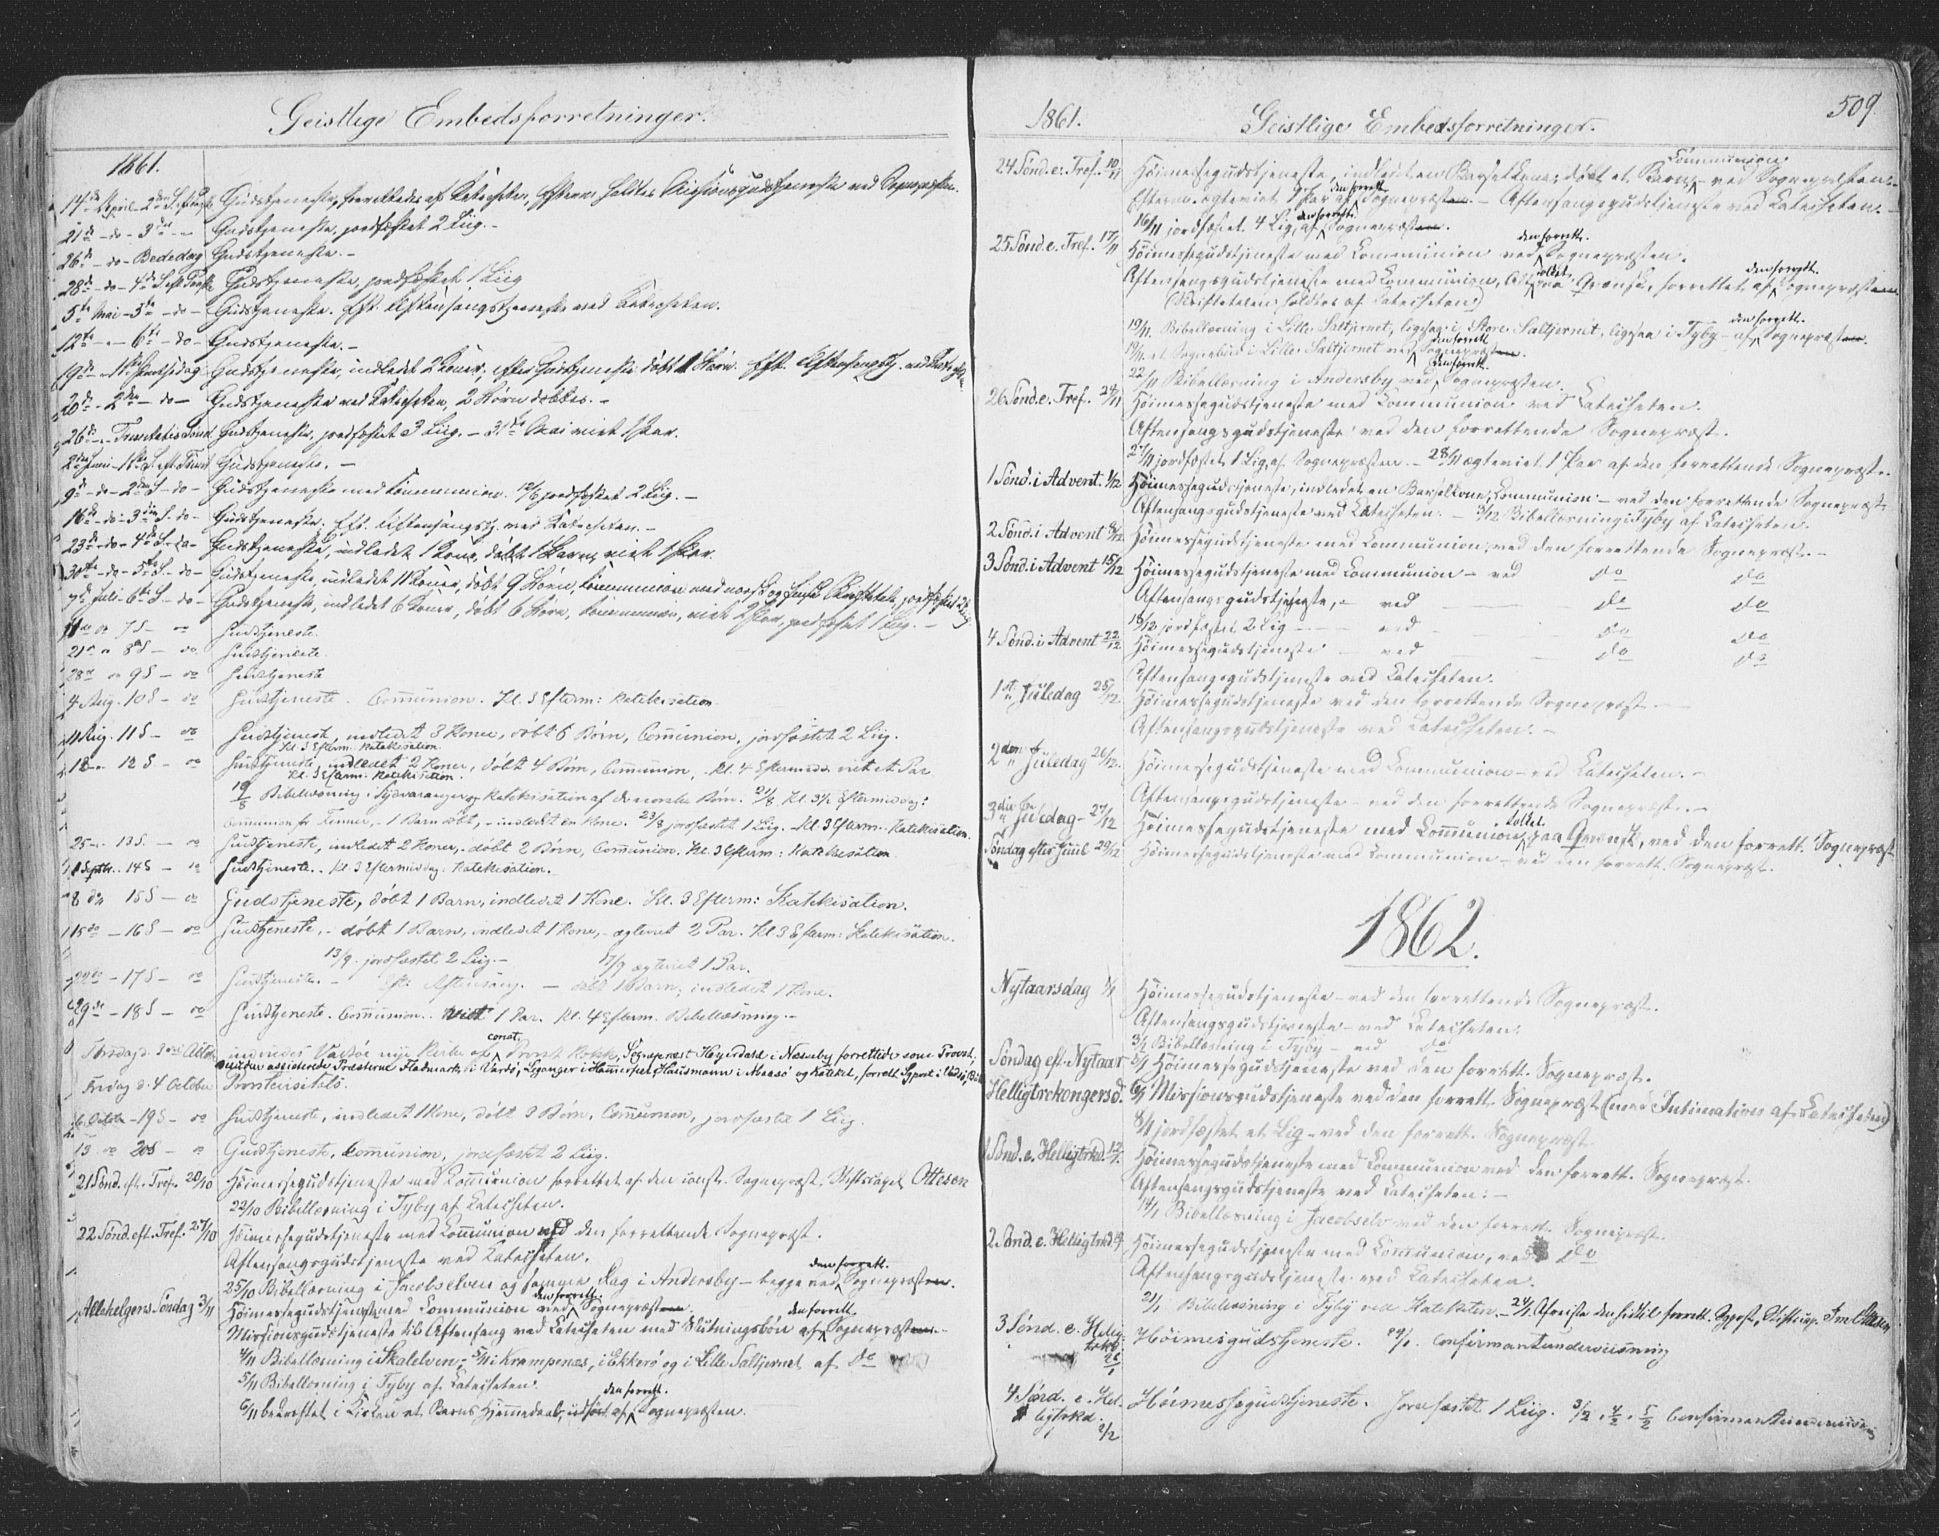 Geistlige Embedsforretninger.
1861.
14de April 2den S. eft. Paaske Gudstjeneste, forrettedes af Katecheten, Efterm. holdtes Missionsgudstjeneste ved Sognepresten.
21de - do - 3die - Gudstjeneste, jordfæstet 2 Liig. -
26de - do - Bededag Gudstjeneste. -
28de - do - 4de S. eft. Paaske Gudstjeneste, jordfæstet 1 Liig
5te Mai - 5te - do - Gudstjeneste. Eft. Aftensangstjeneste ved Katecheten.
12te - - 6te - do - Gudstjeneste. -
19de - 1ste Pintsedag Gudstjeneste, indledet 2 Koner, efter Gudstjeneste døbt Børn. Eft. Aftensangstj. ved
20de - 2den - do - Gudstjeneste ved Katecheten, 2 Børn døbtes. -
26de - Trinitatis Sønd. Gudstjeneste, jordfæstet 3 Liig. - 31te Mai viet 1 Par.
2den Juni - 1ste S. eft. Trinit. Gudstjeneste. -
9de - do - 2den S. - do - Gudstjeneste med Communion. 12/6 jordfæstet 2 Liig. -
16de - do - 3die S. - do - Gudstjeneste; Eft. Aftensangstj. ved Katecheten. -
23de - do - 4de S. - do - Gudstjeneste, indledet 1 Kone, døbt 1 Barn, viet 1 Par.
30te - do - 5te S. - do - Gudstjeneste, indledet 11 Koner, døbt 9 Børn, Communion med norsk og finsk Skriftetale, jordfæstet 2 Liig
7de Juli - 6te S. - do - Gudstjeneste, indledet 6 Koner, døbt 6 Børn, Communion, viet 2 Par, jordfæstet 1 Liig. -
do 7 S - do Gudstjeneste.
21de do 8de S - do Gudstjeneste
28de do 9 S - do Gudstjeneste
4 Aug. 10 S - do Gudstjeneste. Communion. Kl. 3 Efterm: Katekisation.
11 Aug. 11 S - do Gudstjenest, indledet 3 Koner, døbt 6 Børn, Communion, jordfæstet 2 Liig.
Kl 3 Efterm. Katekisation.
18 - 12 S - do Gudstjeneste, indledet 2 Koner, døbt 4 Børn, Communion, Kl. 4 Eftermidd. viet et Par
Kl. 3 Efterm: Katekisation.
19/8 Bibellæsning i Sydvaranger og Katekisation af de norske Børn. 21/8 Kl. 3½ Eftermiddag:
Communion for Finner, - 1 Barn døbt, - indledet en Kone. 23/8 jordfæstet 1 Liig. - Kl. 3 Efterm. Katekisation
25 - 13 S. - do Gudstjeneste, indledet 2 Koner, døbt 2 Børn, Communion. Kl. 3 Efterm: Katekisation
1 Septbr. 14 S - do Gudstjeneste. - Kl. 3 Eftermiddag: Katekisation.
8 do 15 S - do Gudstjeneste, døbt 1 Barn, indledet 1 Kone. Kl. 3 Efterm: Katekisation.
15 do - 16 S - do Gudstjeneste, - døbt 1 Barn, indledet 1 Kone, - ægteviet 2 Par. Kl 3 Efterm: Katekisation.
13/9. jordfæstet 2 Liig. - 17/9 ægteviet 1 Par.
22 do - 17 S - do Gudstjeneste. - Eft: Aftensang. - døbt 1 Barn; indledet 1 Kone.
29 de - 18 S - do Gudstjeneste. Communion. viet 1 Par. Kl. 4 Efterm. Bibellæsning. -
Torsdag d. 3 Octbr indviedes Vadsøe nye Kirke af const. Provst Kokk, Sognepræst Heyerdahl i Næsseby forrettede som Provst,
medens assisterende Præsterne Fladmark i Vardø, Lyganger i Hammerfest, Hausmann i Maasø og Katekt, forrett. Sgprst i Vadsø,
Fredag d. 4 October Provstevisitats.
6 Octbr - 19 S - do Gudstjeneste, indledet 1 Kone, døbt 3 Børn, Communion, jordfæstet 1 Liig.
13 do 20 S - do Gudstjeneste, Communion, jordfæstet 2 Liig.
21 Sønd. eft. Tref. 20/10 Høimessegudstjeneste med Communion forrettet af den const. Sognepræst, Stiftscapel. Ottesen
22/10 Bibellæsning i Tyby af Katecheten.
22 Sønd. eft. Tref. 27/10 Høimessegudstjeneste med Communion ved den forrettende Sognepræst.
Aftensangsgudstjeneste ved Katecheten.
25/10 Bibellæsning i Jacobselven og samme Dag i Andersby - begge ved den forrett. Sognepræsten.
Allehelgens Søndag 3/11 Høimessegudstjeneste med Communion ved den forrett. Sognepræsten
Missionsgudstjeneste til Aftensang ved Katecheten med Slutningsbøn af den forrett. Sognepræsten.
4/11 Bibellæsning i Skalelven; - 5/11 i Krampenæs, i Ekkerø og i Lille Saltjernet af do
5/11 Bibellæsning i Tyby af Katecheten.
6/11 bekræftet i Kirken et Barns Hjemmedaab, udført af den forrett. Sognepræsten.
1861. Geistlige Embedsforretninger. 509.
24 Sønd. e. Tref. 10/11 Høimessegudstjeneste, indledet en Barselkone, døbt et Barn, Communion - ved Sognepræsten. -
Efterm. ægteviet 1 Par af den forrett. Sognepræsten. - Aftensangsgudstjeneste ved Katecheten. -
16/11 jordfæstet 4 Lig, af den forrett. Sognepræsten.
25 Sønd. e. Tref. 17/11 Høimessegudstjeneste med Communion ved den forrett. Sognepræsten.
Aftensangsgudstjeneste med Communion, holdt paa Qvænsk, forrettet af den forrett. Sognepræsten
(Skriftetalen holdtes af Katecheten)
19/11 Bibellæsning i Lille Saltjernet, ligesaa i Store Saltjernet, ligesaa i Tyby - af den forrett. Sognepræsten.
19/11 et Sognebud i Lille Saltjernet ved den forrett. Sognepræsten.
22/11 Bibellæsning i Andersby ved den forrett. Sognepræsten.
26 Sønd. e. Tref. 24/11 Høimessegudstjeneste med Communion ved Katecheten.
Aftensangsgudstjeneste ved den forrettende Sognepræst.
27/11 jordfæstet 1 Lig, af Sognepræsten. - 28/11 ægteviet 1 Par af den forrettende Sognepræst.
1 Sønd. i Advent 1/12 Høimessegudstjeneste, indledet en Barselkone, Communion - ved den forrettende Sognepræst
Aftensangsgudstjeneste ved Katecheten. - 3/12 Bibellæsning i Tyby af Katecheten.
2 Sønd. i Advent 8/12 Høimessegudstjeneste med Communion, ved den forrettende Sognepræst. -
3 Sønd. i Advent 15/12 Høimessegudstjeneste med Communion - ved do do
Aftensangsgudstjeneste, - ved - do do
18/12 jordfæstet 2 Lig - - ved - do do
4 Sønd. i Advent 22/12 Høimessegudstjeneste - ved - do do
Aftensangsgudstjeneste ved Katecheten.
1ste Juledag 25/12 Høimessegudstjeneste ved den forrettende Sognepræst. -
Aftensangsgudstjeneste ved Katecheten. -
2den Juledag 26/12. Høimessegudstjeneste med Communion - ved Katecheten. -
Aftensangsgudstjeneste - ved den forrettende Sognepræst. -
3die Juledag - 27/12 Høimessegudstjeneste med Communion, holdt paa Qvænsk, ved den forrett. Sognepræst
Søndag efter Juul 29/12 Høimessegudstjeneste med Communion - ved den forrett. Sognepræst.
1862.
Nytaarsdag 1/1 Høimessegudstjeneste - ved den forrettende Sognepræst.
Aftensangsgudstjeneste - ved Katecheten.
3/1 Bibellæsning i Tyby - ved do
Søndag eft. Nytaar 5/1 Høimessegudstjeneste ved den forrett. Sognepræst.
Helligtrekongersd. 6/1 Missionsgudstjeneste ved den forrett. Sognepræst (med Intimation af Katecheten)
8/1 jordfæstet et Lig - ved den forrett. Sognepræst
1 Sønd. e. Helligtrkd. 12/1. Høimessegudstjeneste med Communion ved den forrett. Sognepræst.
Aftensangsgudstjeneste ved Katecheten. -
14/1 Bibellæsning i Jacobselv ved den forrett. Sognepræst.
2 Sønd. e. Helligtrkd. Høimessegudstjeneste med Communion, ved do
Aftensangsgudstjeneste ved Katecheten.
21/1 Bibellæsning i Tyby ved Kateketen. - 24/1 Afreiste den hidtil forrett. Sgprst, Stiftscap. Ottesen
3 Sønd. e. Hellig-trkd 26/1 Høimesgudstjeneste. 29/1. Confirmantundervisning
4 Sønd. e. Hel-ligtrkd. 2/2 Høimessegudstjeneste. Jordfæstet 1 Liig. 3/2, 4/2, 5/2 Confirmantundervisn